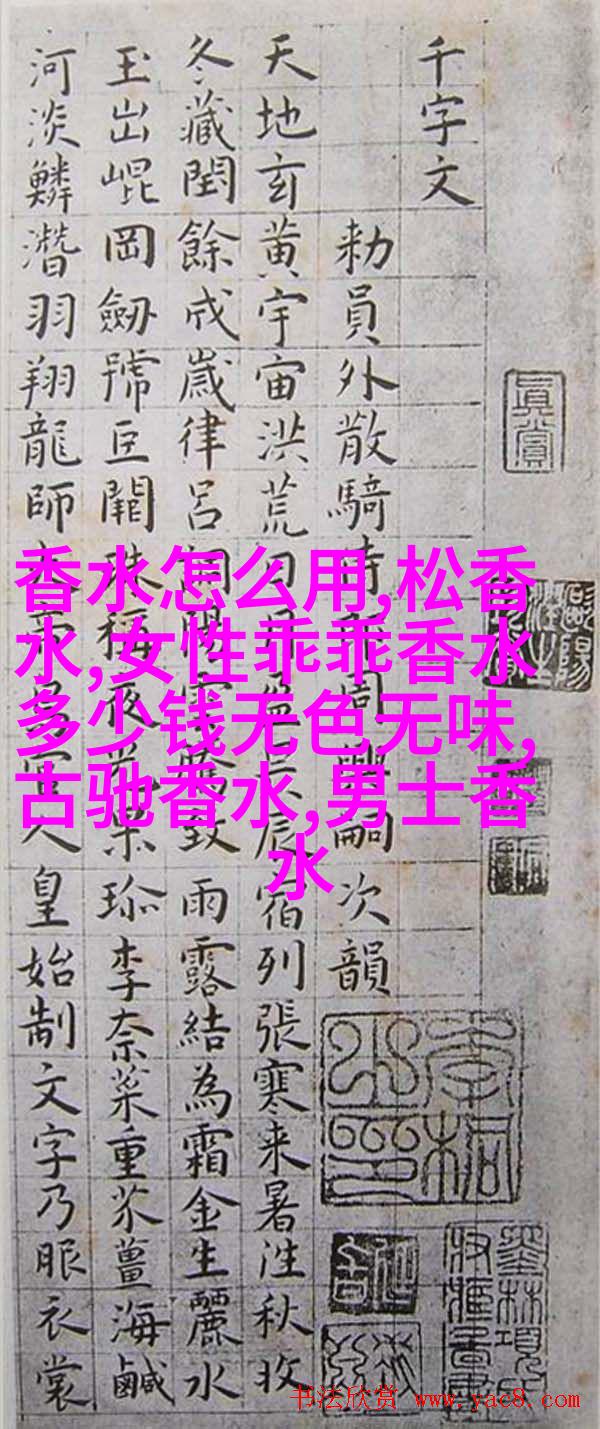 千字文
勑員外散騎侍周興嗣次韻
天地玄黄宇宙洪荒日月辰宿列張寒来暑往秋收
冬藏閏餘成歲律呂調陽騰致雨露結為霜金生麗水
玉出崐岡劒號巨闕珠稱夜光菓珎李柰菜重芥薑海鹹
河淡鱗潛羽翔龍師官人皇始制文字乃服衣裳
真賞
香水怎么用,松香
水,女性乖乖香水
多少钱无色无味,
古驰香水,男士香
水
书法欣赏 www.yac8.com